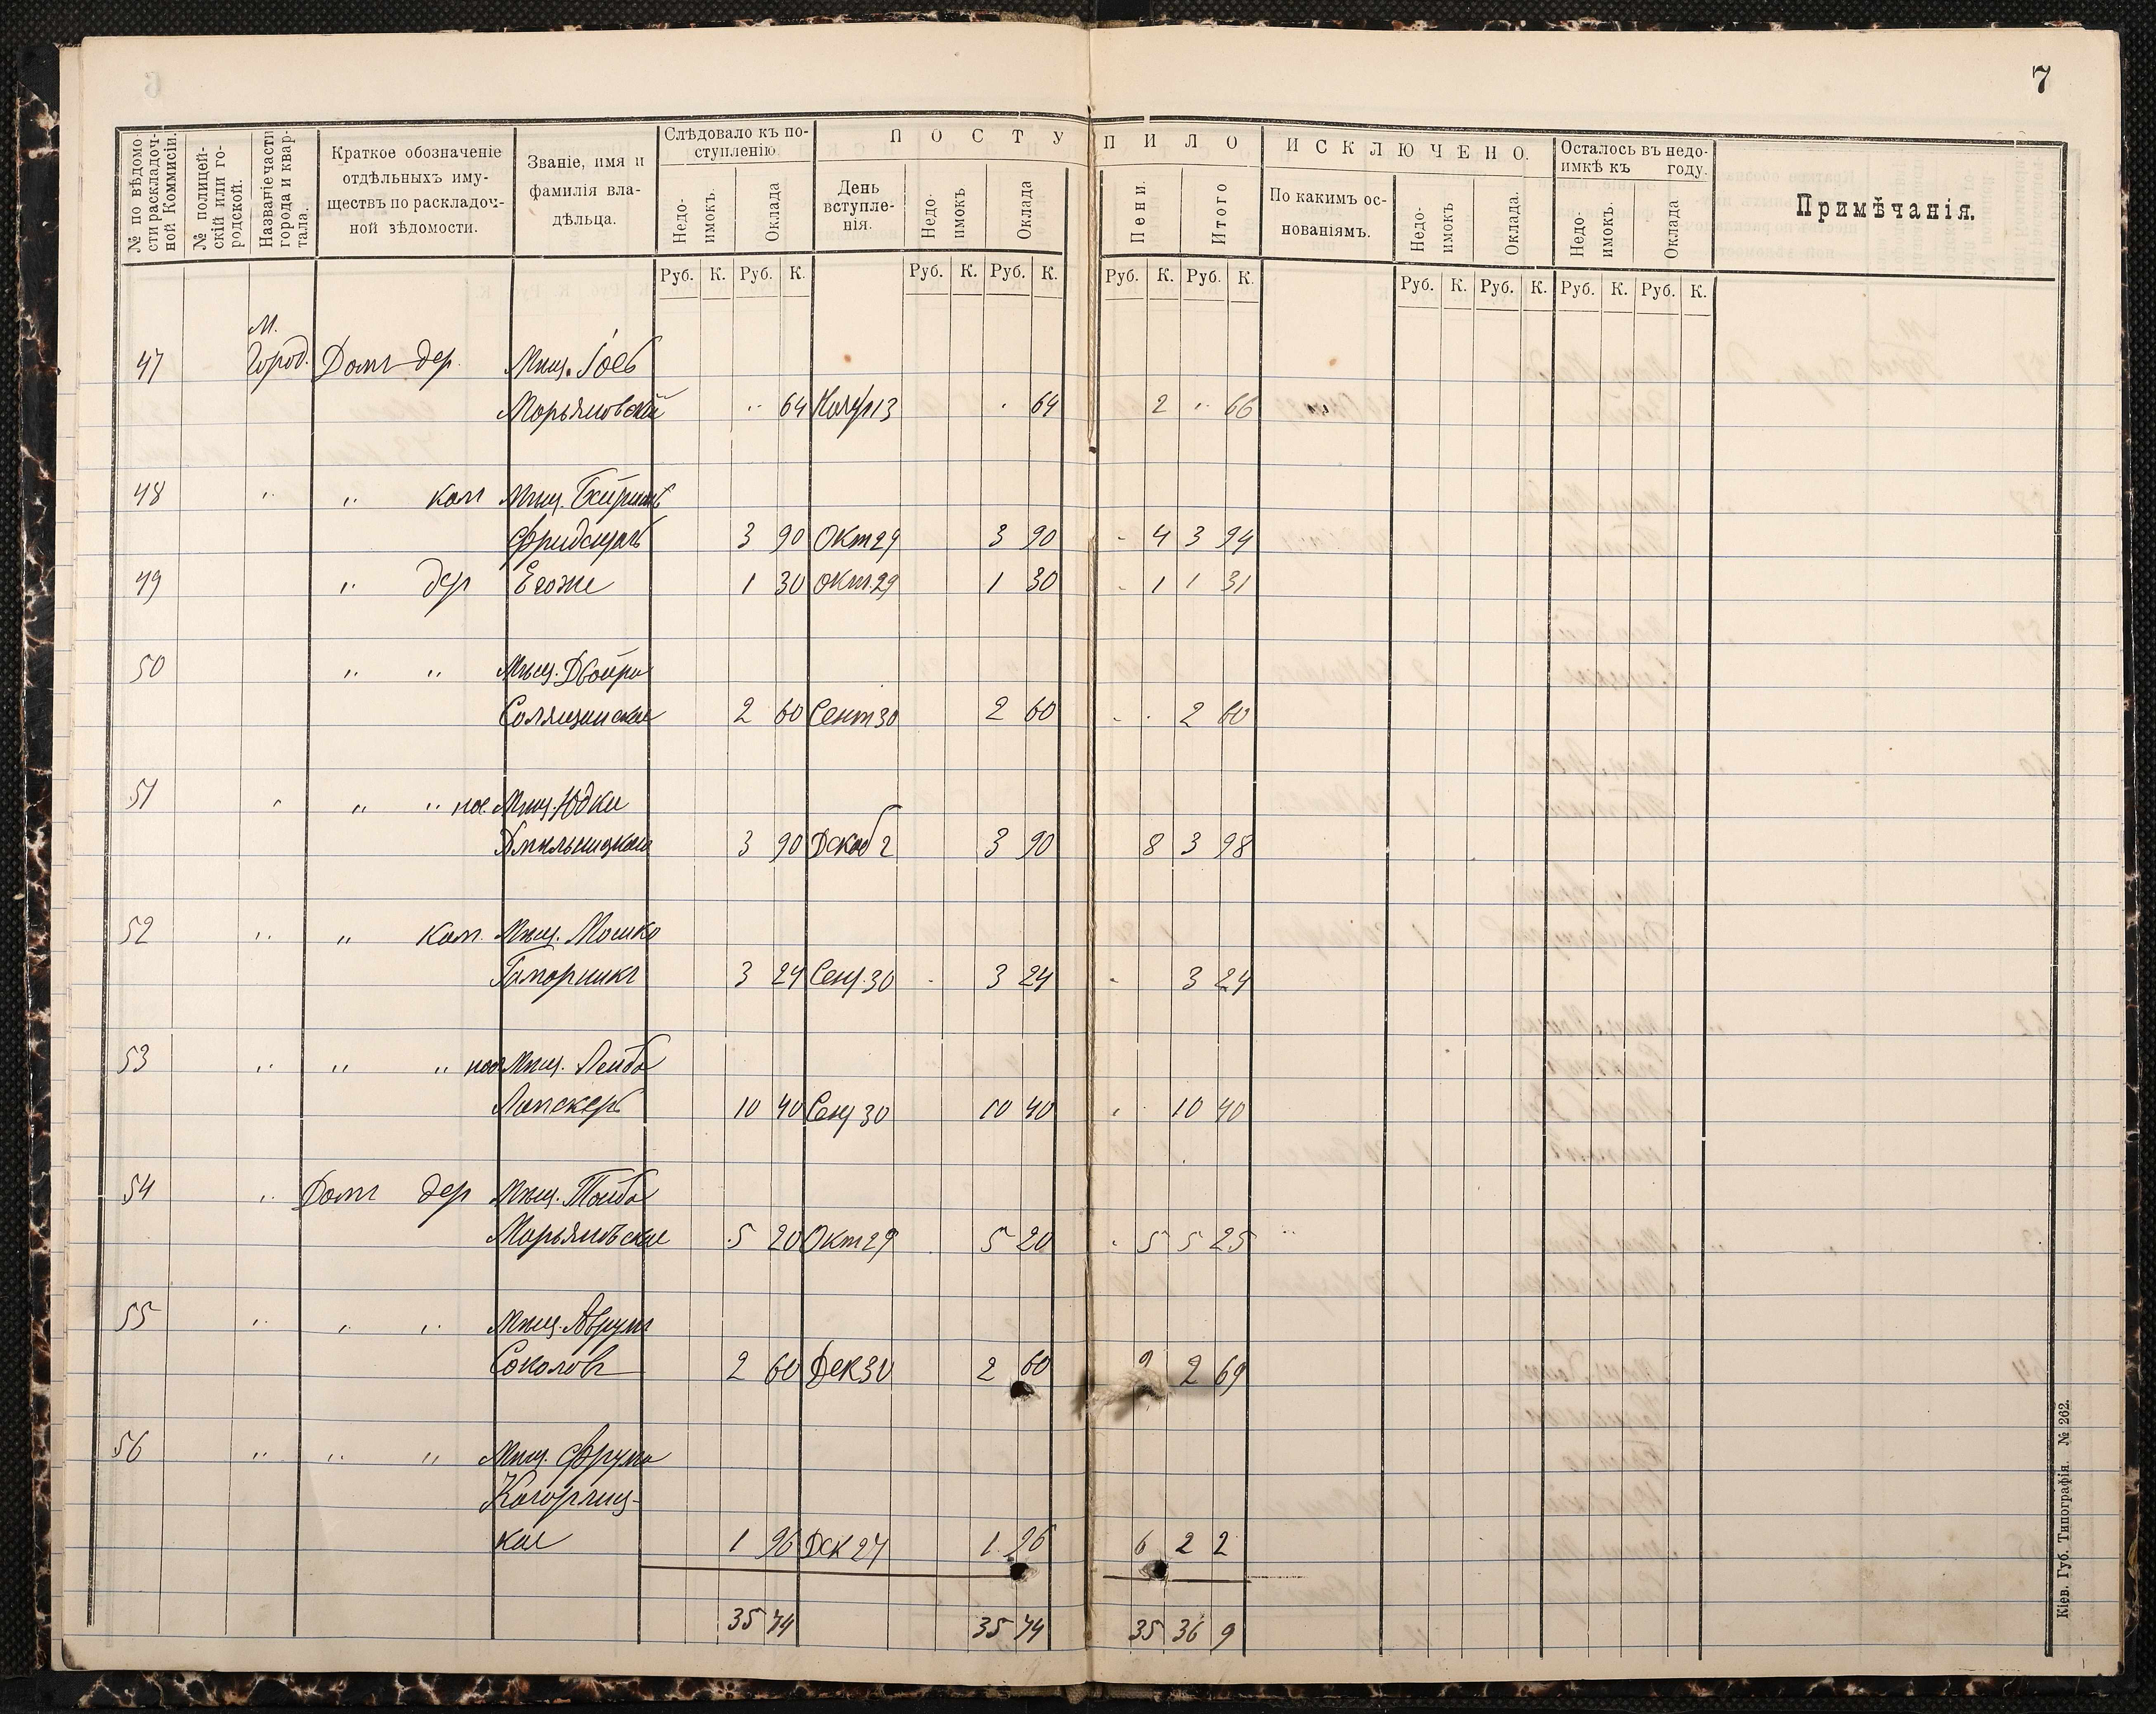 7
№ по вѣдомо-
сти раскладоч-
ной Коммисіи.
№ полицей-
скій или го-
родской.
Названіе части
города и квар-
тала.
Краткое обозначеніе
отдѣльныхъ иму-
ществъ по раскладоч-
ной вѣдомости.
Званіе, имя и
фамилія вла-
дѣльца.
Слѣдовало къ по-
ступленію
Недо-
имокъ.
Оклада
ПОСТУПИЛО
День
вступле-
нія.
Недо-
имокъ
Оклада
Пени.
Итого
ИСКЛЮЧЕНО.
По какимъ ос-
нованіямъ.
Недо-
имокъ
Оклада.
Осталось въ недо-
имкѣ къ году.
Недо-
имокъ.
Оклада
Примѣчанія.
Руб. К. Руб. К. Руб. К. Руб. К. Руб. К. Руб. К. Руб. К. Руб. К. Руб. К. Руб. К.
М.
47 Город. Домъ дер. Мѣщ.
Марьяновскій " 64 13 " 64 2 " 66
48 " " кам Мѣщ.
3 90 Окт 29 3 90 - 4 3 94
49 " дер Егоже 1 30 Окт. 29 1 30 - 1 1 31
50 " " Мѣщ. Двойра
2 60 Сент 30 2 60 - . 2 60
51 " " " Мѣщ. Юдки
3 90 Декаб 2 3 90 8 3 98
52 " " Кам. Мѣщ. Мошко
3 24 Сен. 30 - 3 24 - 3 24
53 " " " Мѣщ. Лейба
Лапскеръ 10 40 Сен 30 10 40 10 40
54 " Домъ дер Мѣщ.
5 20 Окт 29 5 20 5 5 25
55 " " " Мѣщ. Аврумъ
Соколовъ 2 60 Дек 30 2 60 9 2 69
56 " " " Мѣщ. Фрума
Кагорлиц-
кая 1 96 Дек 27 1 96 6 2 2
35 74 35 74 35 36 9
Кіев. Губ. Типографія. № 262.